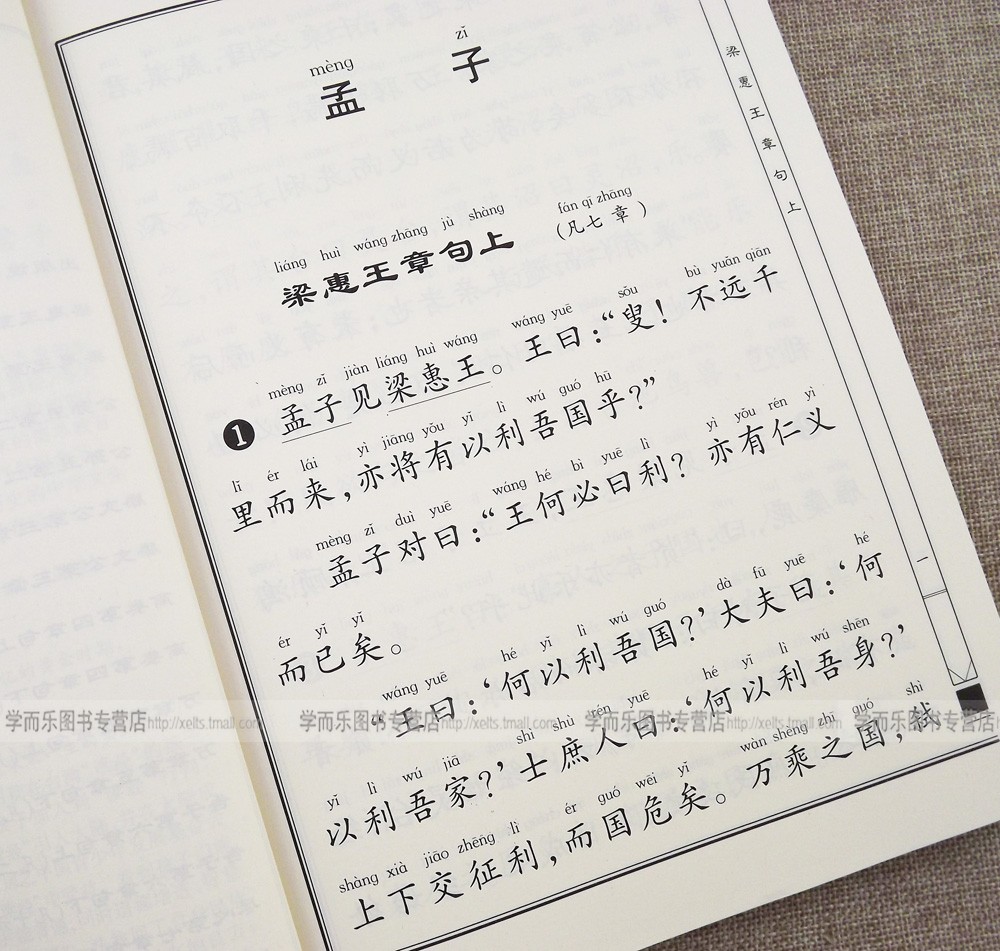 mèng zǐ
孟子
liáng huì wáng zhāng jù shàng fán qī zhāng
梁惠王章句上 (凡七章)
mèng zǐ jiàn liáng huì wáng wáng yuē sǒu bù yuǎn qiān
❶ 孟子见梁惠王。王曰：“叟！不远千
lǐ ér lái yì jiāng yǒu yǐ lì wú guó hū
里而来，亦将有以利吾国乎？”
mèng zǐ duì yuē wáng hé bì yuē lì yì yǒu rén yì
孟子对曰：“王何必曰利？亦有仁义
ér yǐ yǐ
而已矣。
wáng yuē hé yǐ lì wú guó dà fū yuē hé
“王曰：‘何以利吾国？’大夫曰：‘何
yǐ lì wú jiā shì shù rén yuē hé yǐ lì wú shēn
以利吾家？’士庶人曰：‘何以利吾身？’
shàng xià jiāo zhēng lì ér guó wēi yǐ wàn shèng zhī guó shì
上下交征利，而国危矣。万乘之国，弑
梁惠王章句上
一
学而乐图书专营店http://xelts.tmall.com 学而乐图书专营店http://xelts.tmall.com 学而乐图书专营店http://xelts.tmall.com 学而乐图书专营店http://xelts.tmall.com